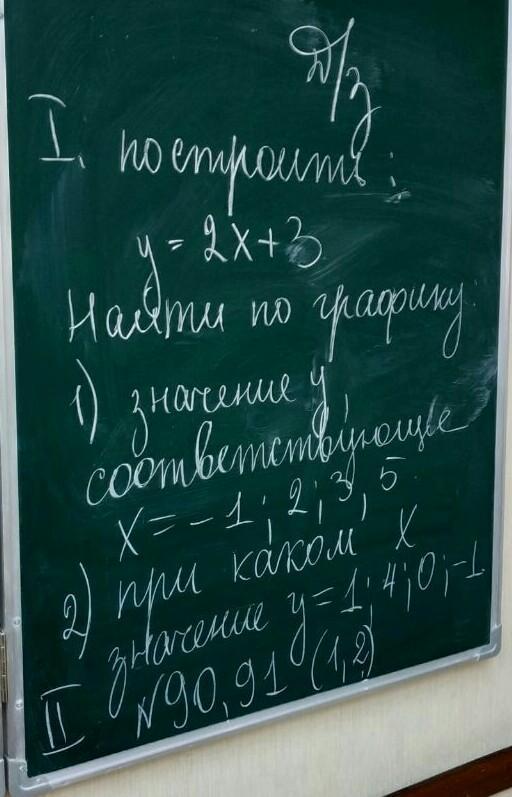 Д/з
I. построить:
y = 2x+3
Найти по графику:
1) значение y,
соответствующие
x = -1; 2; 3; 5
2) при каком x
значение y=1; 4; 0; -1
II №90, 91 (1,2)